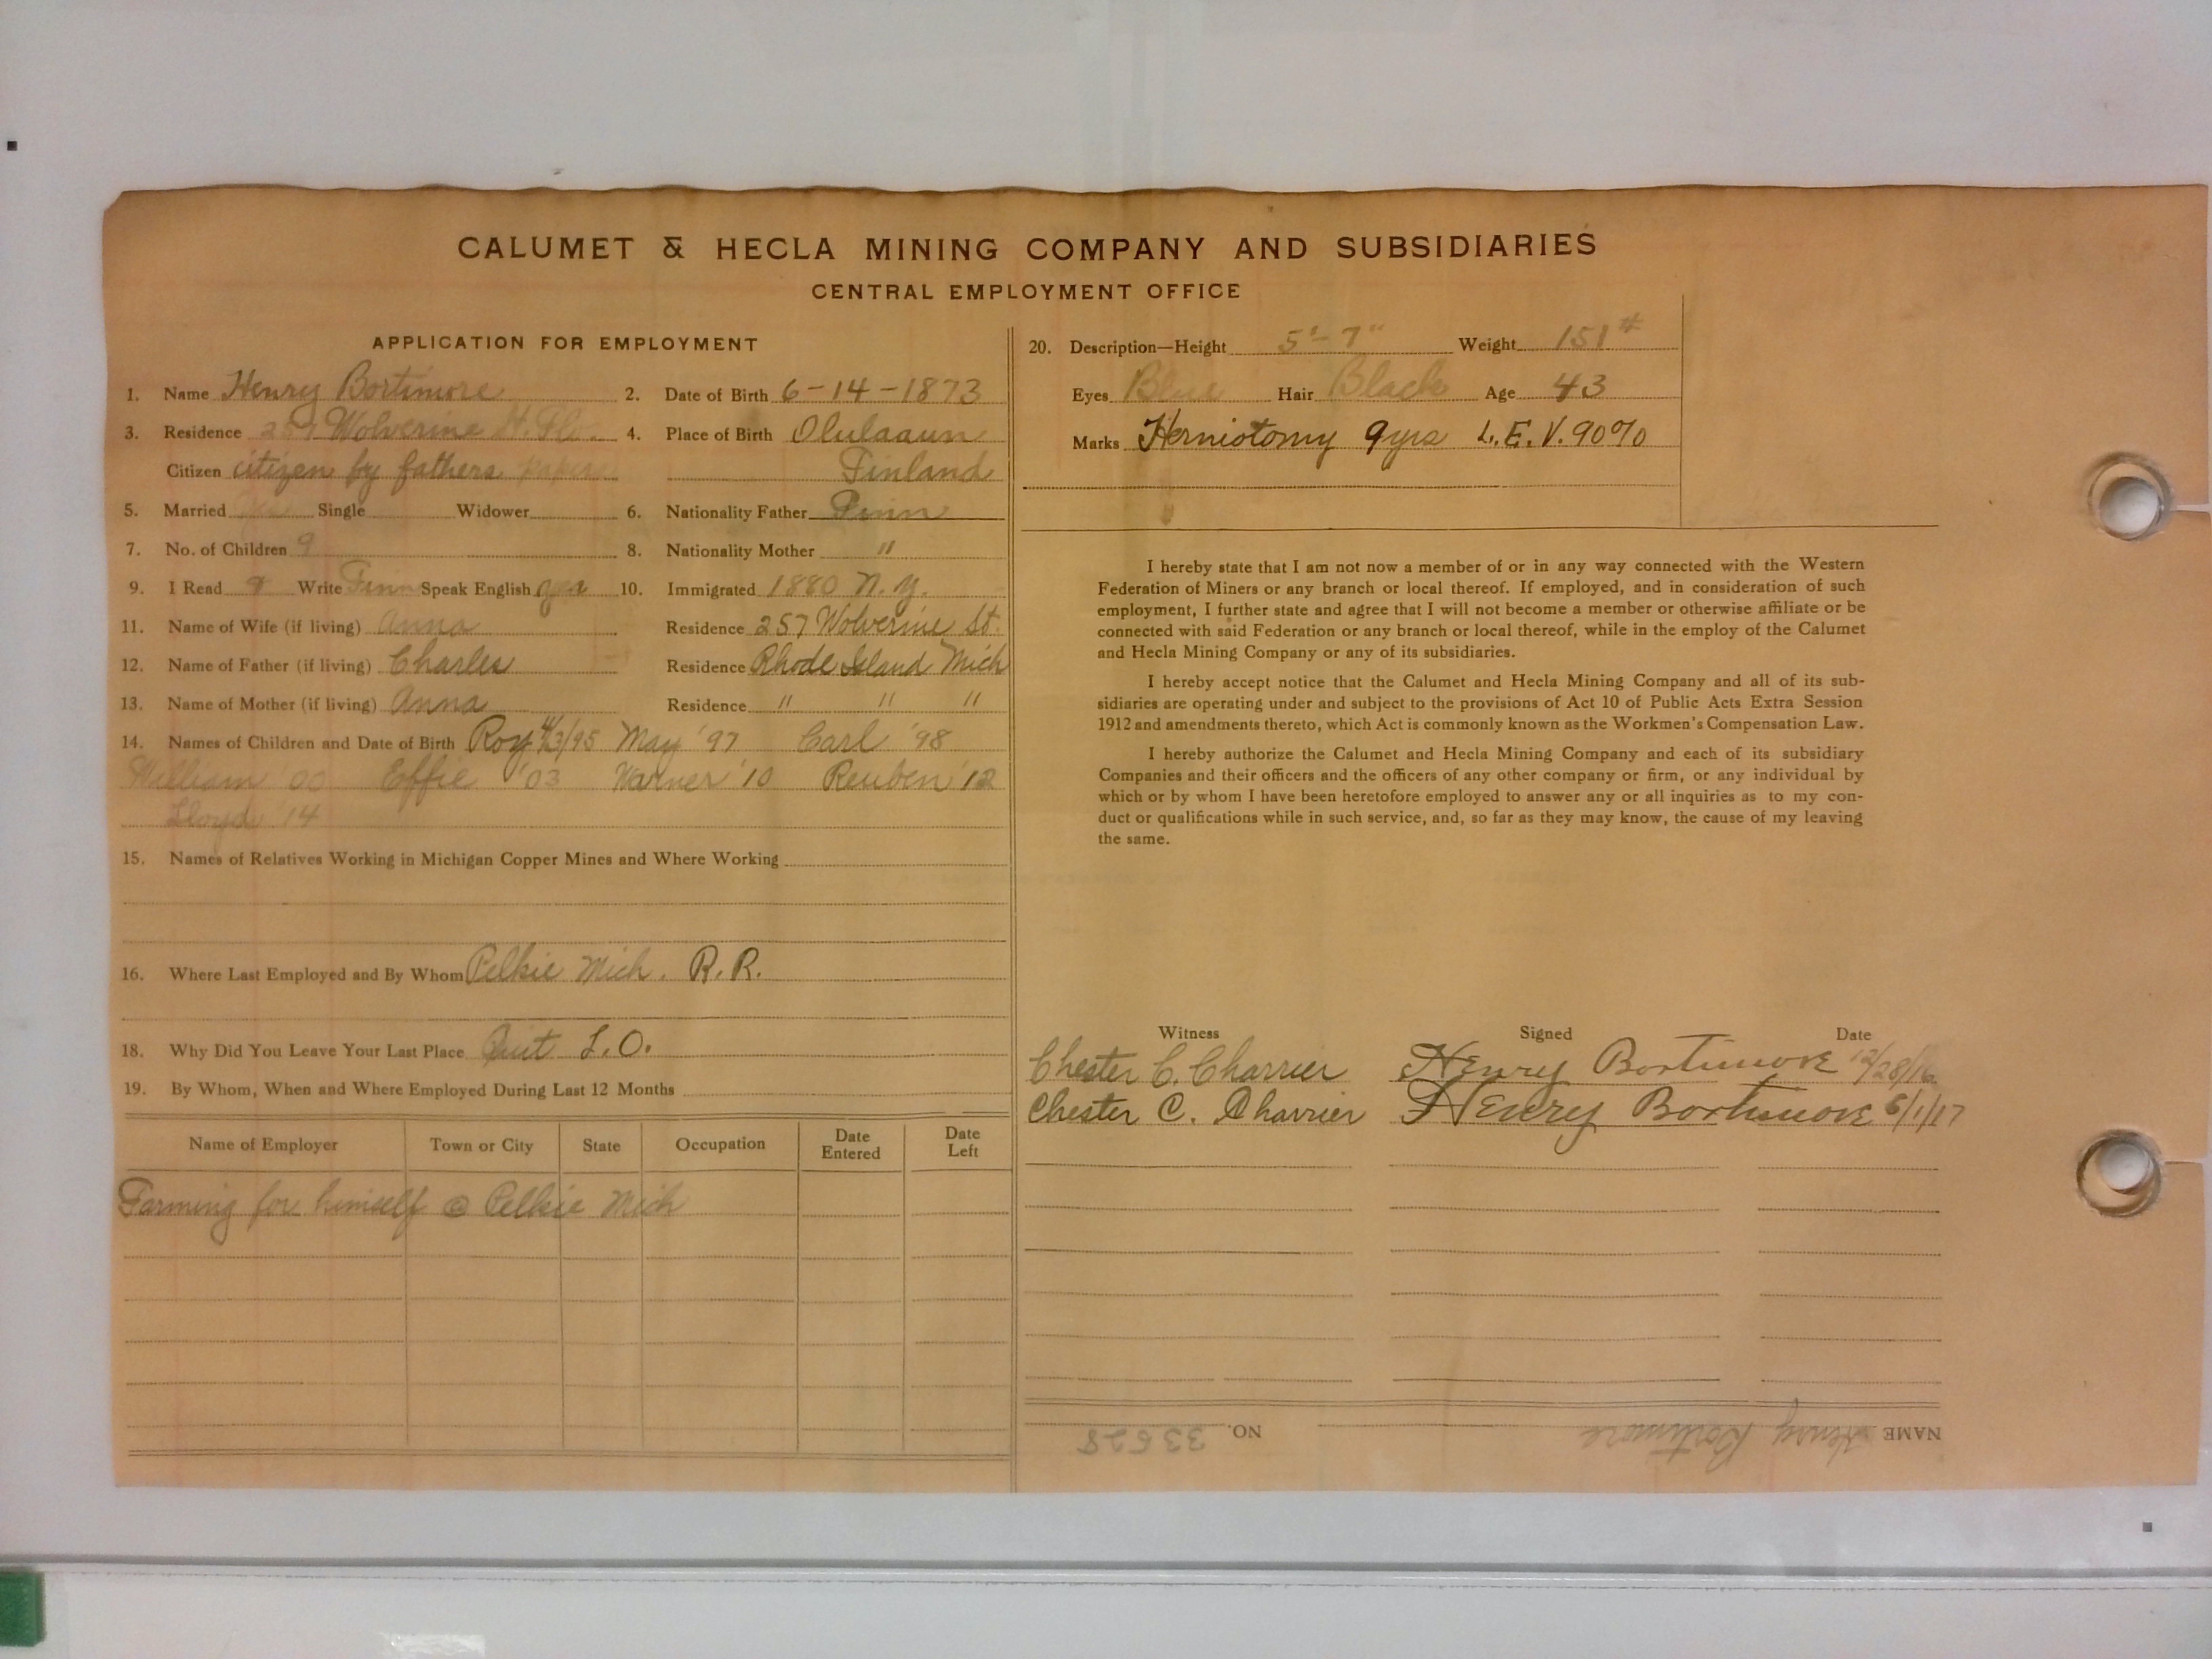 CALUMET & HECLA MINING COMPANY AND SUBSIDIARIES
CENTRAL EMPLOYMENT OFFICE
APPLICATION FOR EMPLOYMENT
1. Name Henry Bortimore 2. Date of Birth 6-14-1873
3. Residence 257 Wolverine St. 4. Place of Birth
Citizen citizen by fathers papers Finland
5. Married yes Single Widower 6. Nationality Father Finn
7. No. of Children 9 8. Nationality Mother "
9. I Read Write Finn Speak English yes 10. Immigrated 1880 N.Y.
11. Name of Wife (if living) Anna Residence 257 Wolverine St.
12. Name of Father (if living) Charles Residence Rhode Island Mich
13. Name of Mother (if living) Anna Residence " " "
14. Names of Children and Date of Birth Roy 4/3/95 May '97 Carl '98
William '00 Effie '03 Warner '10 Reuben '12
Lloyd '14
15. Names of Relatives Working in Michigan Copper Mines and Where Working
16. Where Last Employed and By Whom Pelkie Mich. R.R.
18. Why Did You Leave Your Last Place Quit L.O.
19. By Whom, When and Where Employed During Last 12 Months
Name of Employer Town or City State Occupation Date Entered Date Left
Farming for himself @ Pelkie Mich
20. Description—Height 5'-7" Weight 151#
Eyes Blue Hair Black Age 43
Marks Herniotomy 9yrs L.E.V. 90%
I hereby state that I am not now a member of or in any way connected with the Western
Federation of Miners or any branch or local thereof. If employed, and in consideration of such
employment, I further state and agree that I will not become a member or otherwise affiliate or be
connected with said Federation or any branch or local thereof, while in the employ of the Calumet
and Hecla Mining Company or any of its subsidiaries.
I hereby accept notice that the Calumet and Hecla Mining Company and all of its sub-
sidiaries are operating under and subject to the provisions of Act 10 of Public Acts Extra Session
1912 and amendments thereto, which Act is commonly known as the Workmen's Compensation Law.
I hereby authorize the Calumet and Hecla Mining Company and each of its subsidiary
Companies and their officers and the officers of any other company or firm, or any individual by
which or by whom I have been heretofore employed to answer any or all inquiries as to my con-
duct or qualifications while in such service, and, so far as they may know, the cause of my leaving
the same.
Witness Signed Date
Chester C. Charrier Henry Bortimore 12/28/16
Chester C. Charrier Henry Bortimore 6/1/17
NAME Henry Bortimore NO. 33628